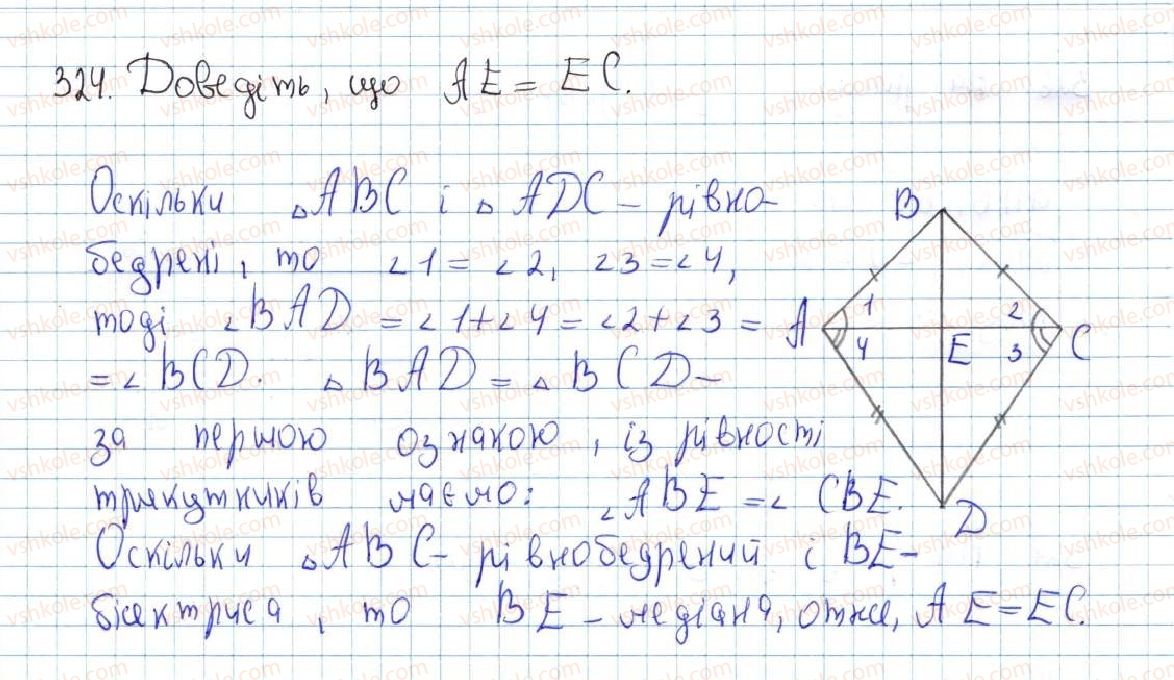 324. Доведіть, що AE = EC.
Оскільки △ABC і △ADC - рівно-
бедрені, то ∠1 = ∠2, ∠3 = ∠4,
тоді ∠BAD = ∠1+∠4 = ∠2+∠3 =
= ∠BCD. △BAD = △BCD -
за першою ознакою, із рівності
трикутників маємо: ∠ABE = ∠CBE.
Оскільки △ABC - рівнобедрений і BE -
бісектриса, то BE - медіана, отже, AE = EC.
B
A 1 2 C
4 E 3
D